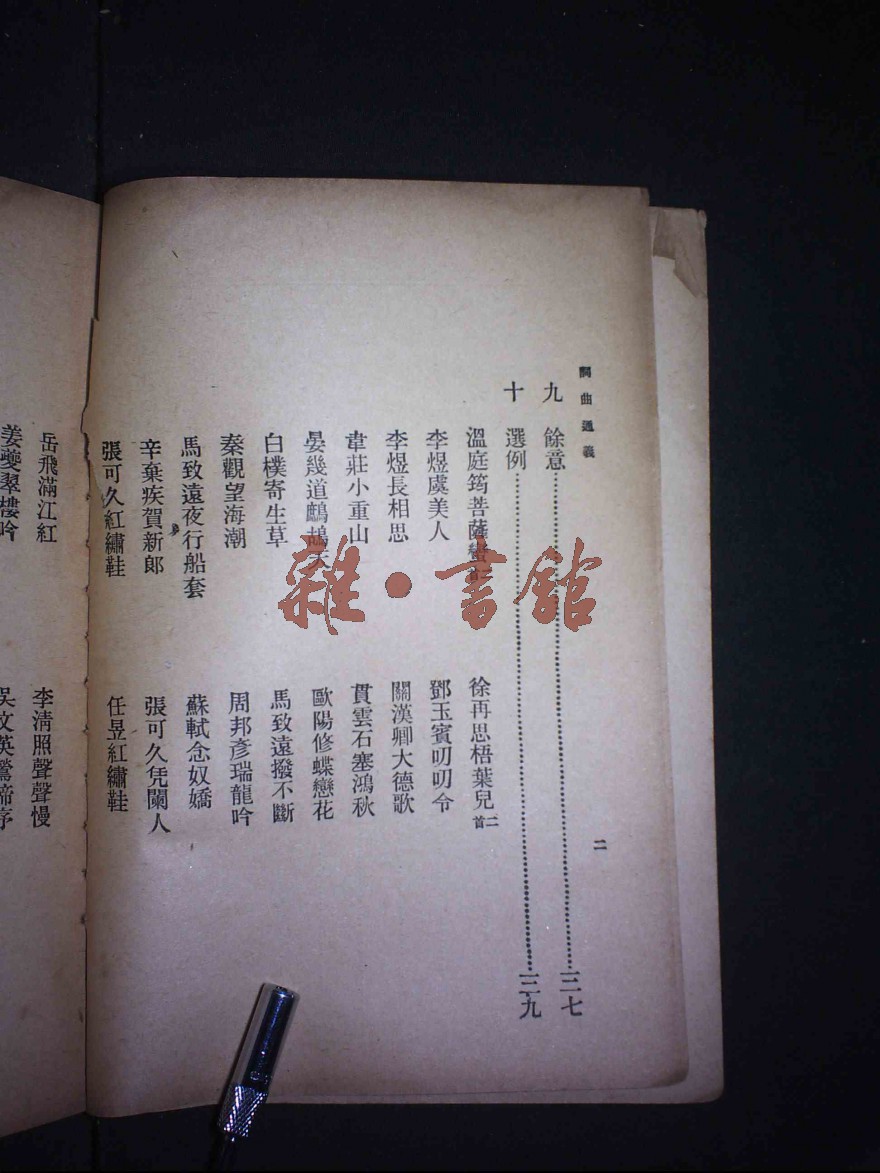 詞曲通義
二
九 餘意……三七
十 選例……三九
溫庭筠菩薩蠻二首
徐再思梧葉兒二首
李煜虞美人
鄧玉賓叨叨令
李煜長相思
關漢卿大德歌
韋莊小重山
貫雲石塞鴻秋
晏幾道鷓鴣天
歐陽修蝶戀花
白樸寄生草
馬致遠撥不斷
秦觀望海潮
周邦彥瑞龍吟
馬致遠夜行船套
蘇軾念奴嬌
辛棄疾賀新郎
張可久凭闌人
張可久紅繡鞋
任昱紅繡鞋
岳飛滿江紅
李清照聲聲慢
姜夔翠樓吟
吳文英鶯啼序
雜·書館